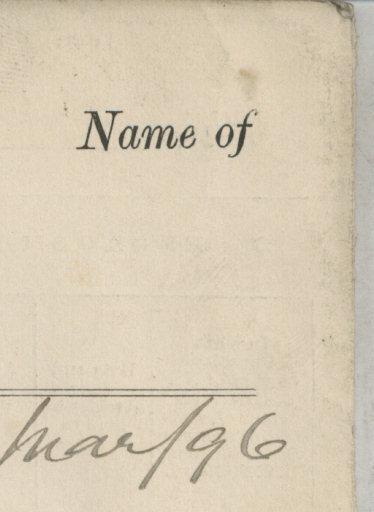 Name of
Mar/96